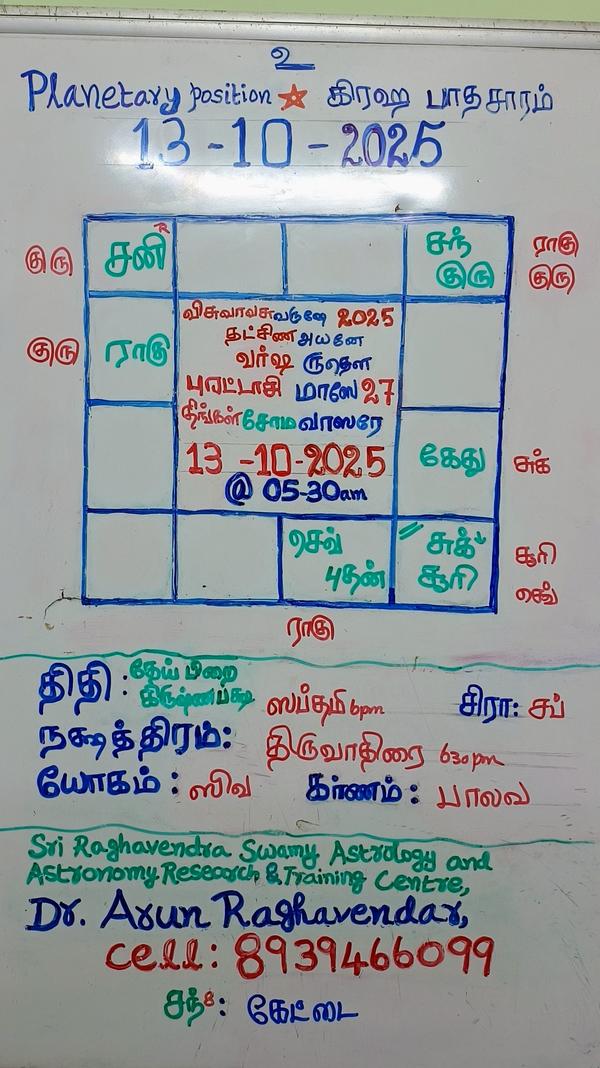 உ
Planetary position கிரஹ பாதசாரம்
13-10-2025
குரு சனி R சந் ராகு
குரு குரு
குரு ராகு
விசுவாவசுவருஷே 2025
தட்சிண அயனே
வர்ஷ ருதௌ
புரட்டாசி மாஸே 27
திங்கள் சோம வாஸரே
13-10-2025
@ 05-30am
கேது சுக்
செவ் சுக் சூரி
புதன் சூரி செவ்
ராகு
திதி: தேய் பிறை
கிருஷ்ணபக்ஷ ஸப்தமி 6pm சிரா: சப்
நக்ஷத்திரம்: திருவாதிரை 630pm
யோகம்: ஸிவ கர்ணம்: பாலவ
Sri Raghavendra Swamy Astrology and
Astronomy Research & Training Centre,
Dr. Arun Raghavendar,
cell: 8939466099
சந்8: கேட்டை